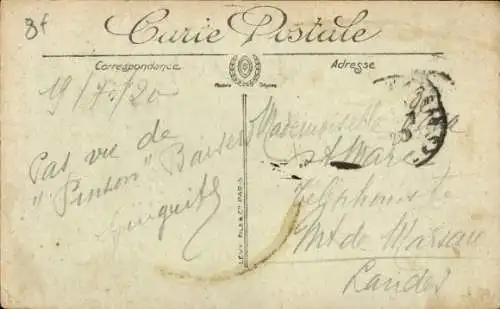 3f
Carte Postale
Correspondance
Adresse
19/7/20
Pas vue de
"Pinson" Baisers
Mademoiselle
St Marc
Téléphoniste
Mt de Marsan
Landes
LEVY FILS & Cie PARIS